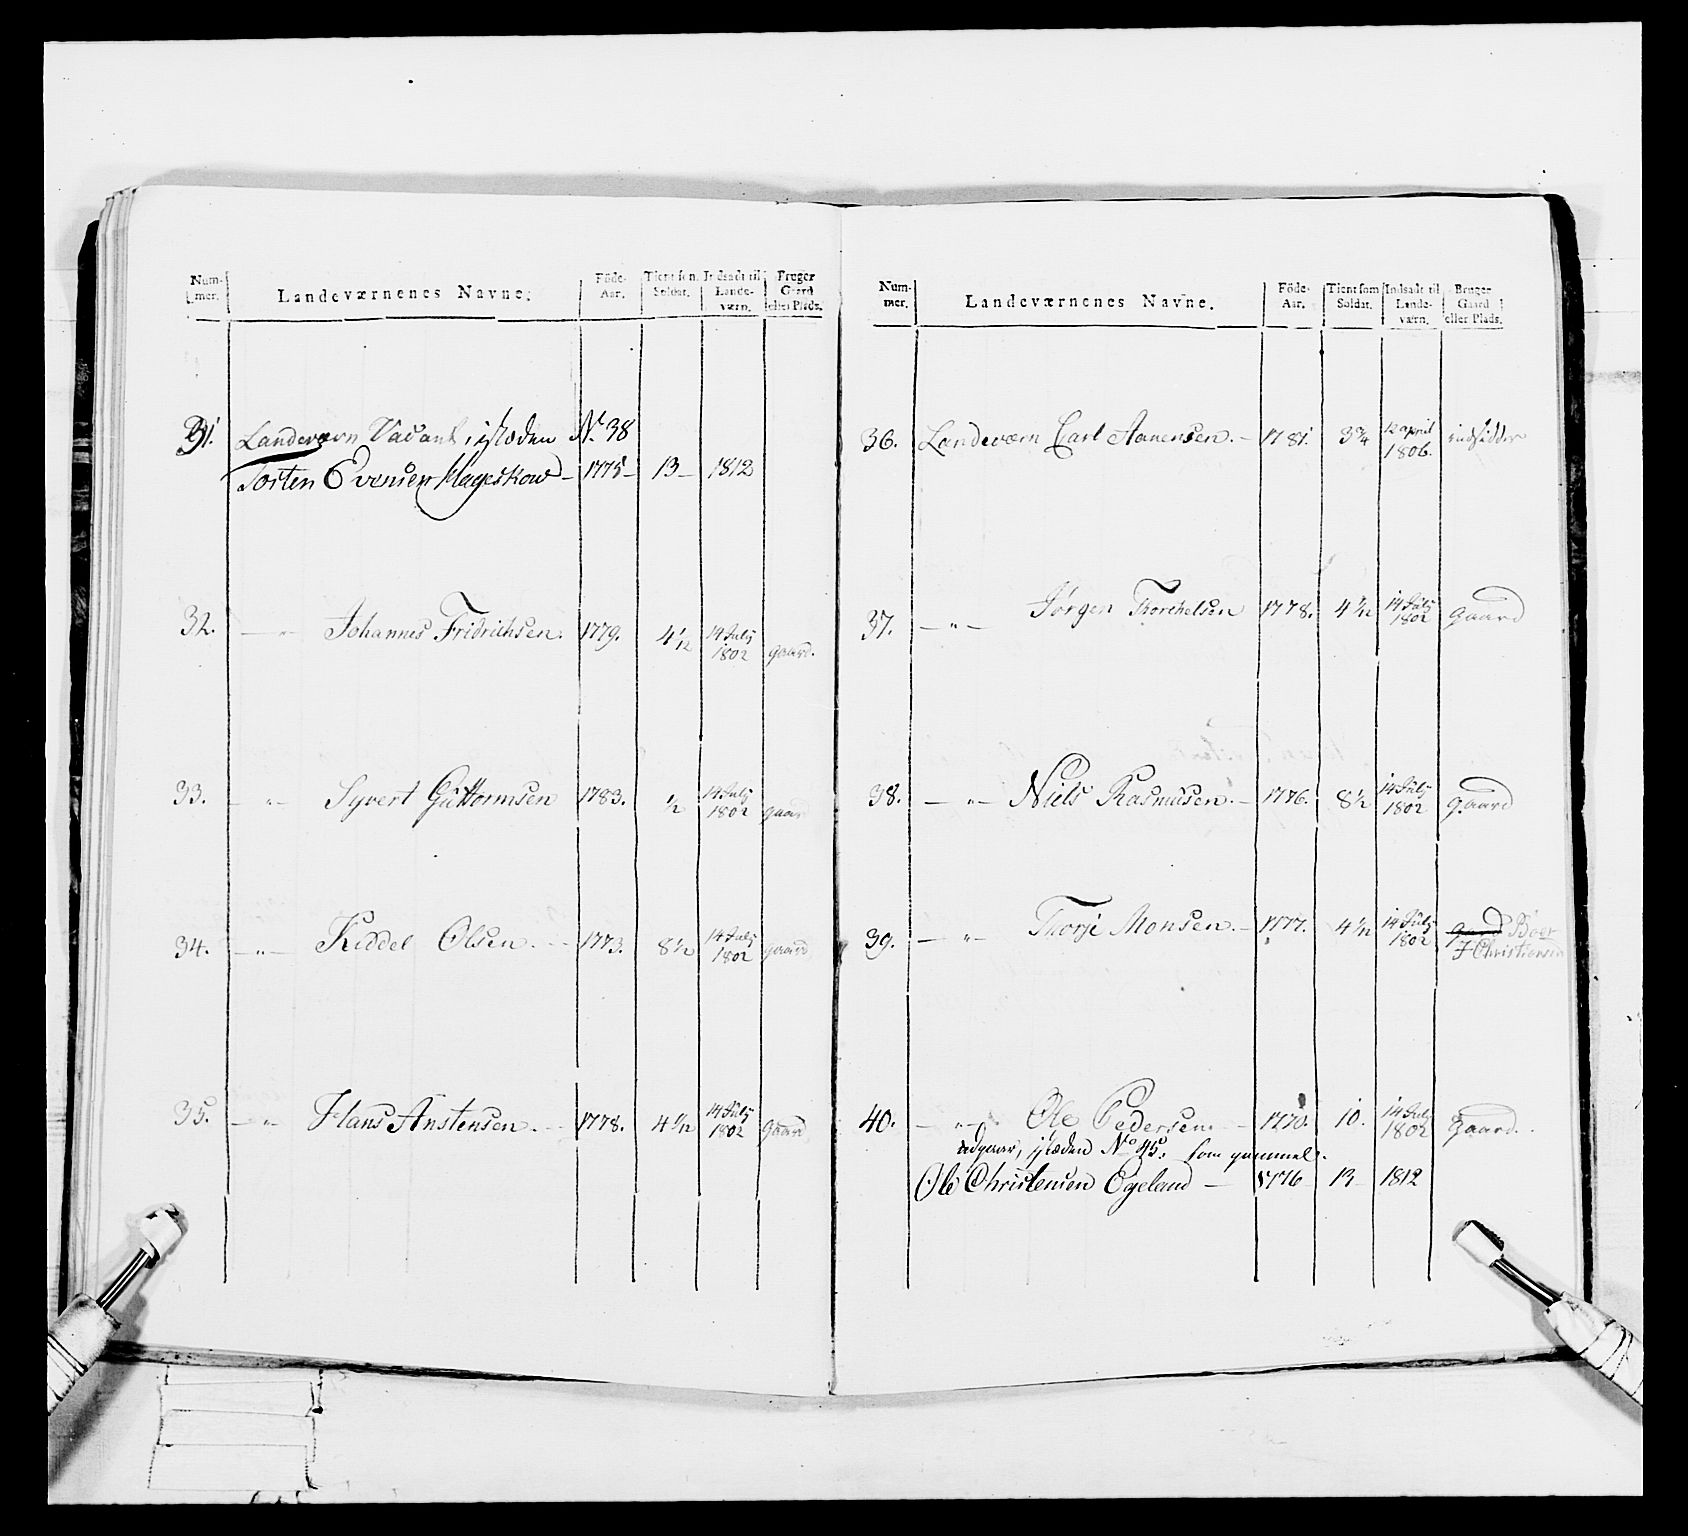 Num-
mer.
Landeværnenes Navne.
Föde-
Aar.
Tient som
Soldat.
Indsadt til
Lande-
værn.
Bruger
Gaard
eller Plads.
31. Landeværn Vacant, istæden No. 38
Torsten Evensen Hageskow – 1775 – 13 – 1812
32. — „ — Johannes Fridrichsen. 1779. 4 1/12 14 July 1802 gaard.
33. — „ — Syvert Guttormsen 1783. 1/2 14 July 1802 gaard
34. — „ — Kiddel Olsen. — 1773. 8 1/2 14 July 1802 gaard
35. — „ — Hans Anstensen. — 1778. 4 1/12 14 July 1802 gaard
Num-
mer.
Landeværnenes Navne.
Föde-
Aar.
Tient som
Soldat.
Indsadt til
Lande-
værn.
Bruger
Gaard
eller Plads.
36. Landeværn Carl Aanensen. – 1781. 3 3/4 12 april 1806. indsidder
37. — „ — Jørgen Thorchelsen 1778. 4 1/12 14 July 1802 gaard
38. — „ — Niels Rasmusen. – 1776. 8 1/2 14 July 1802 gaard
39. — „ — Thorje Monsen. – 1777. 4 1/12 14 July 1802 gaard Boer
I Christiansen
40. — „ — Ole Pedersen. – 1770. 10. 14 July 1802 gaard.
udgaar, istæden No 45. som gammel.
Ole Christensen Egeland — 1776 13 – 1812